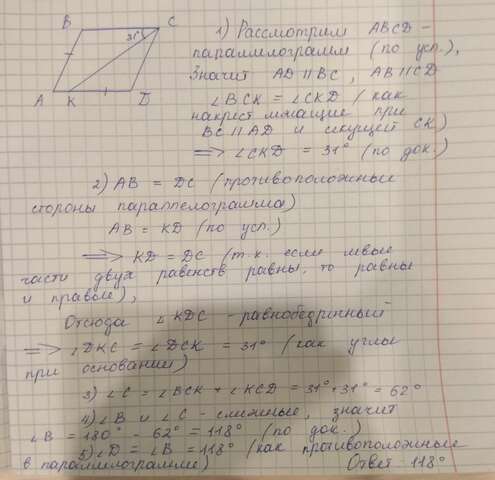 B
C
31°
A
K
D
1) Рассмотрим ABCD -
параллелограмм (по усл.),
Значит AD || BC, AB || CD
∠BCK = ∠CKD (как
накрест лежащие при
BC || AD и секущей CK)
⟹ ∠CKD = 31° (по док.)
2) AB = DC (противоположные
стороны параллелограмма)
AB = KD (по усл.)
⟹ KD = DC (т.к. если левые
части двух равенств равны, то равны
и правые),
Отсюда ∠KDC - равнобедренный
⟹ ∠DKC = ∠DCK = 31° (как углы
при основании)
3) ∠C = ∠BCK + ∠KCD = 31° + 31° = 62°
4) ∠B и ∠C - смежные, значит
∠B = 180° - 62° = 118° (по док.)
5) ∠D = ∠B = 118° (как противоположные
в параллелограмме)
Ответ - 118°